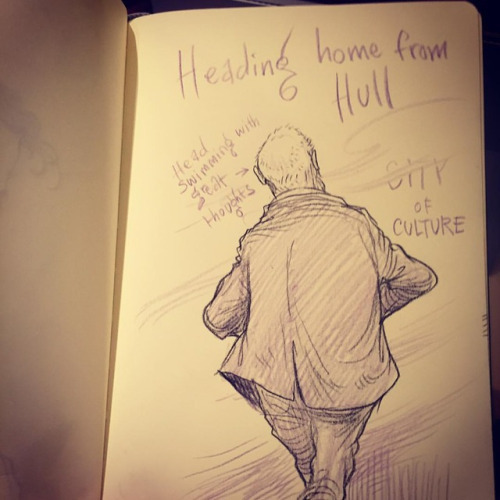 Heading home from
Hull
Head
swimming with
great
thoughts
CITY
OF
CULTURE